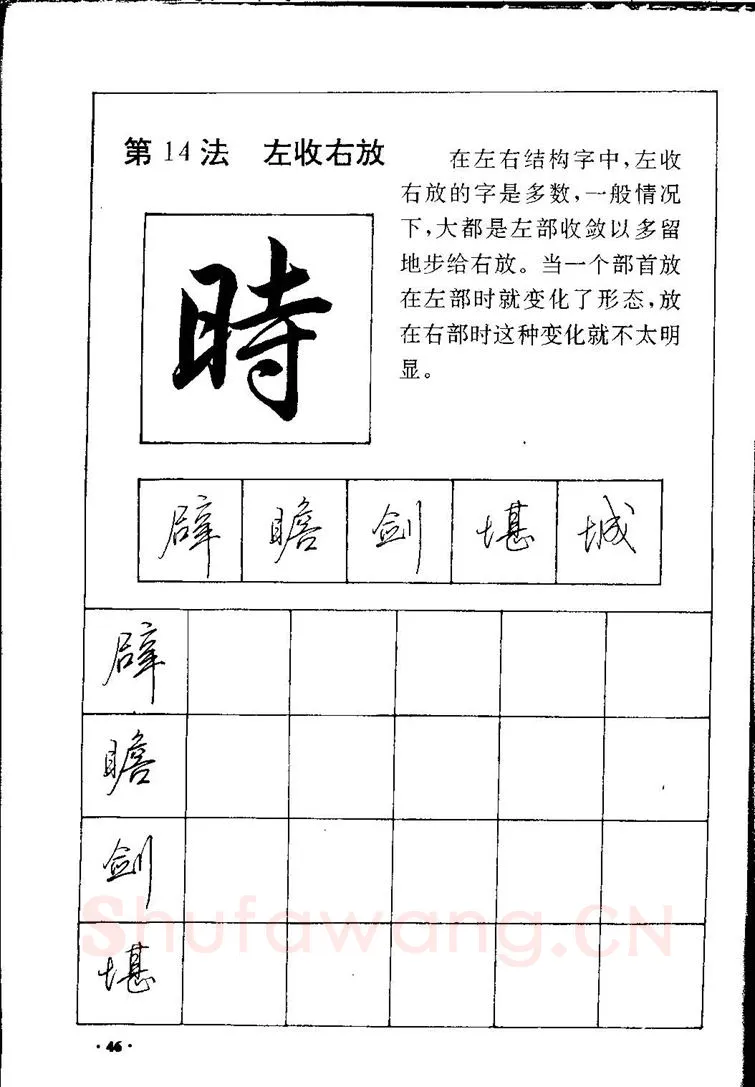 第14法 左收右放
在左右结构字中,左收
右放的字是多数,一般情况
下,大都是左部收敛以多留
地步给右放。当一个部首放
在左部时就变化了形态,放
在右部时这种变化就不太明
显。
時
辟 瞻 剑 堪 城
辟
瞻
剑
堪
Shufawang.CN
·46·